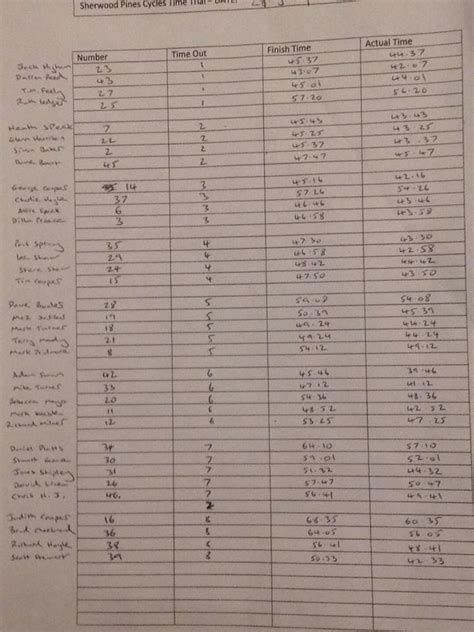 Sherwood Pines Cycles Time Trial - DATE:
Number Time Out Finish Time Actual Time
23 1 45.37 44.37
43 1 43.07 42.07
Tim Feely 27 1 45.01 44.01
25 1 57.20 56.20
Heath Speck 7 2 45.43 43.43
Glenn Harrison 22 2 45.25 43.25
2 2 45.37 43.37
Dave 45 2 47.47 45.47
George Cooper 14 3 45.16 42.16
Charlie 37 3 57.26 54.26
Alfie Speck 6 3 46.46 43.46
3 46.58 43.58
Paul Spring 35 4 47.30 43.30
Lee Shaw 29 4 46.58 42.58
Steve Shaw 24 4 48.42 44.42
Tim Cooper 15 4 47.50 43.50
Dave Beales 28 5 59.08 54.08
5 50.39 45.39
Mark Turner 18 5 49.24 44.24
Terry 21 5 49.24 44.24
Mark 8 5 54.12 49.12
Adam 42 6 45.46 39.46
Mike Turner 33 6 47.12 41.12
Rebecca Mayo 20 6 54.36 48.36
Mark 11 6 48.52 42.52
Richard Milnes 12 6 53.25 47.25
Daniel Platts 34 7 64.10 57.10
Stuart 30 7 59.01 52.01
Jones Shipley 31 7 51.32 44.32
David 26 7 57.47 50.47
Chris H.J. 46. 7 56.41 49.41
Judith Cooper 16 8 68.35 60.35
Brad 36 8 64.05 56.05
Richard Hoyle 38 8 56.41 48.41
Scott Stewart 39 8 50.33 42.33